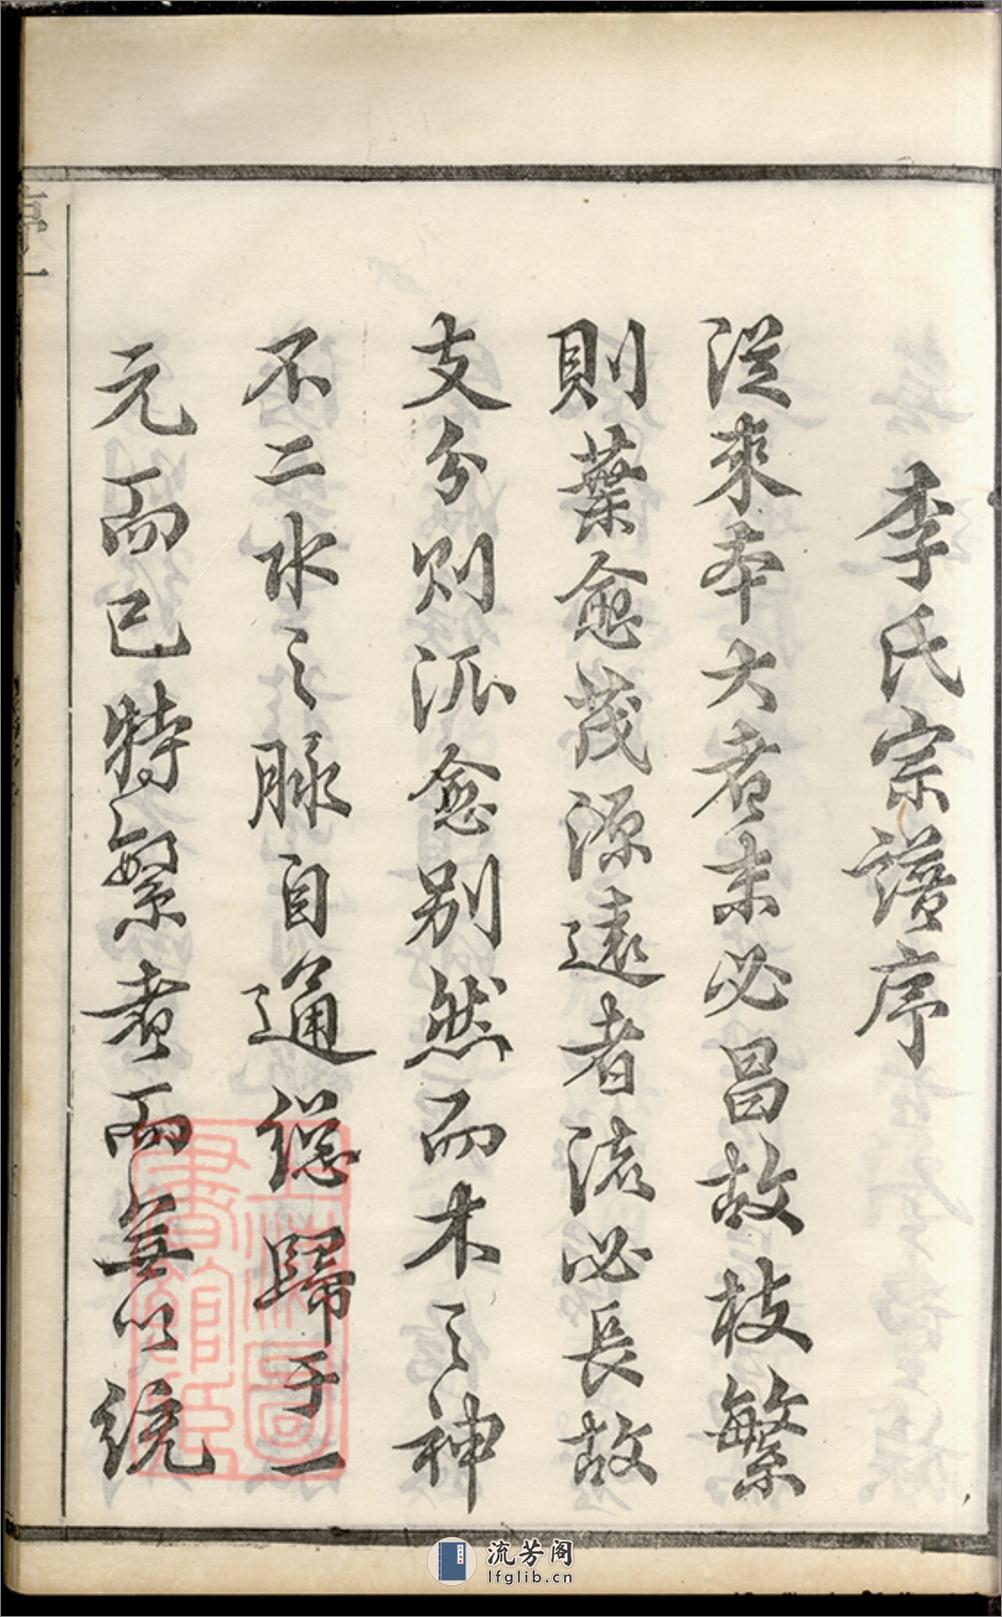 李氏宗譜序
從來本大者末必昌故枝繁
則葉愈茂源遠者流必長故
支分则派愈别然而木之神
不二水之脉自通總歸于一
元而已特繁者而無以統
序 一
上海圖書館藏
流芳阁
lfglib.cn